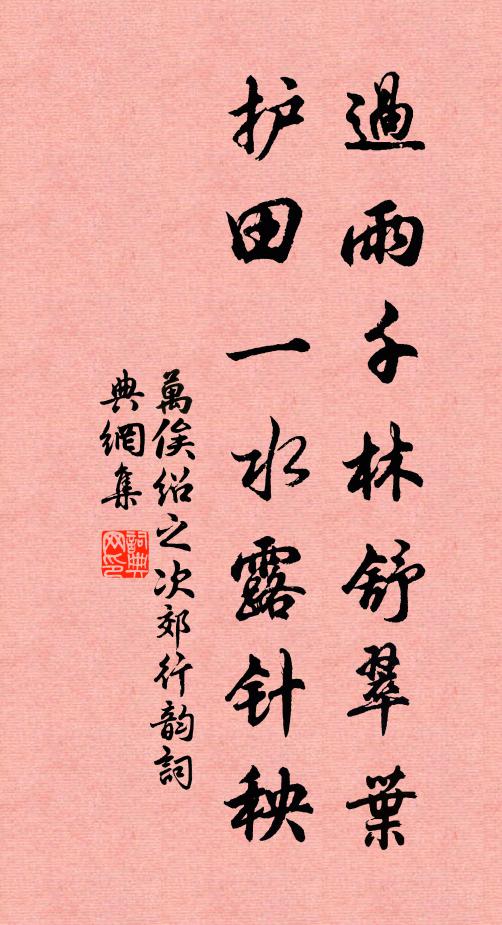 過雨千林舒翠葉
护田一水露针秧
萬俟绍之次郊行韵詞
典網集
詞典
网印